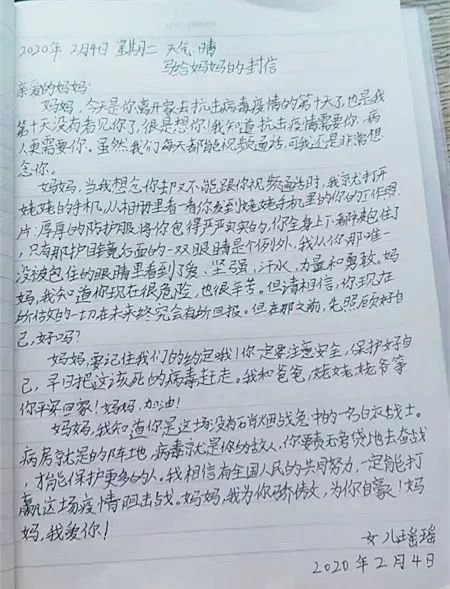 2020年2月4日 星期二 天气晴
写给妈妈的封信
亲爱的妈妈:
妈妈,今天是你离开家去抗击病毒疫情的第十天了,也是我
第十天没有看见你了,很是想你!我知道抗击疫情需要你,病
人更需要你。虽然我们每天都能视频通话,可我还是非常想
念你。
妈妈,当我想念你却又不能跟你视频通话时,我就打开
姥姥的手机,从相册里看一看你发到姥姥手机里的你的工作照
片:厚厚的防护服将你包得严严实实的,你全身上下都被包住了
,只有那护目镜后面的一双眼睛是个例外,我从你那唯一
没被包住的眼睛里看到了爱、坚强、汗水、力量和勇敢。妈
妈,我知道你现在很危险,也很辛苦。但请相信,你现在
所付出的一切在未来终究会有所回报。但在那之前,先照顾好自
己,好吗?
妈妈,要记住我们的约定哦!你一定要注意安全,保护好自
己,早日把这该死的病毒赶走。我和爸爸,姥姥,姥爷等
你平安回家!妈妈,加油!
妈妈,我知道你是这场没有硝烟战争中的一名白衣战士。
病房就是你的阵地,病毒就是你的敌人,你要责无旁贷地去奋战
,才能保护更多的人。我相信有全国人民的共同努力,一定能打
赢这场疫情阻击战。妈妈,我为你骄傲,为你自豪!妈
妈,我爱你!
女儿瑶瑶
2020年2月4日